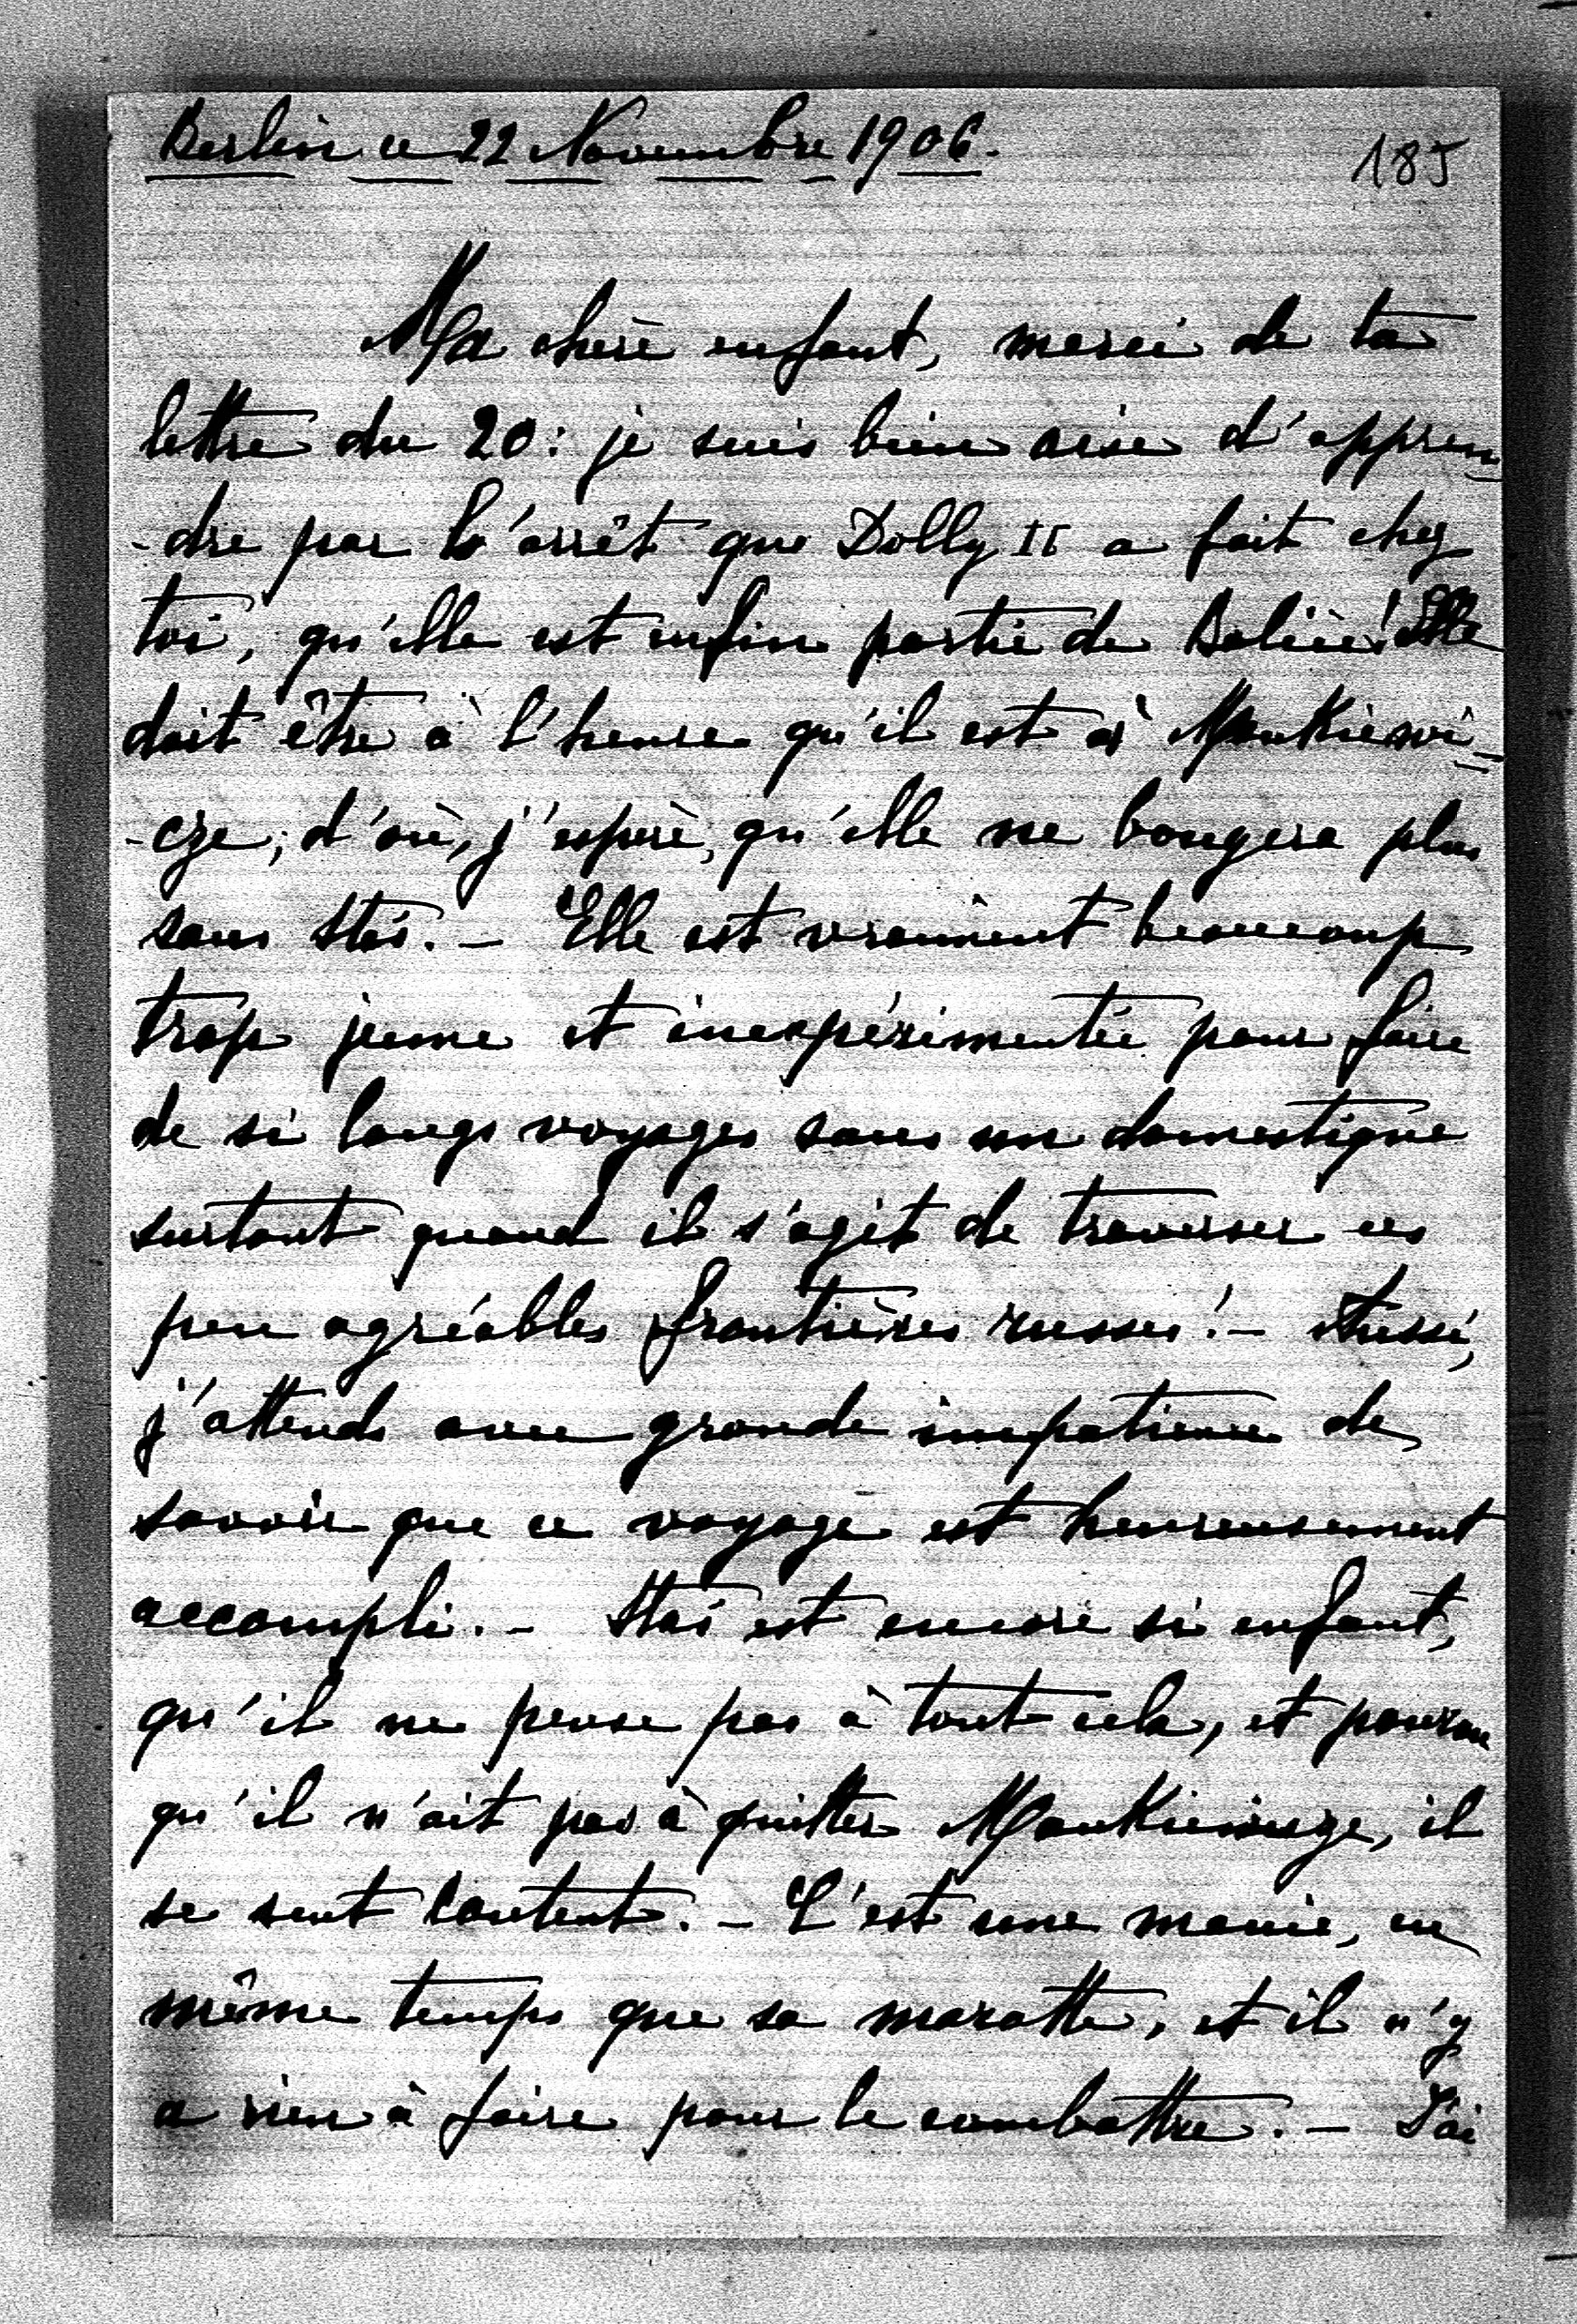 Berlin ce 22 Novembre 1906.
185
Ma chère enfant, merci de ta
lettre du 20: je suis bien aise d'appren-
-dre par l'arrêt que Dolly II a fait chez
toi, qu'elle est enfin partie de Balice! Elle
doit être à l'heure qu'il est à Mankiewi-
-cze, d'où, j'espère, qu'elle ne bougera plus
sans Stas. – Elle est vraiment beaucoup
trop jeune et inexpérimentée pour faire
de si longs voyages sans un domestique
surtout quand il s'agit de traverser ces
peu agréables frontières russes! – Aussi,
j'attends avec grande impatience de
savoir que ce voyage est heureusement
accompli. – Stas est encore si enfant,
qu'il ne pense pas à tout cela, et pourvu
qu'il n'ait pas à quitter Mankiewicze, il
se sent content. – C'est une manie, en
même temps que sa marotte, et il n'y
a rien à faire pour le combattre. – J'ai